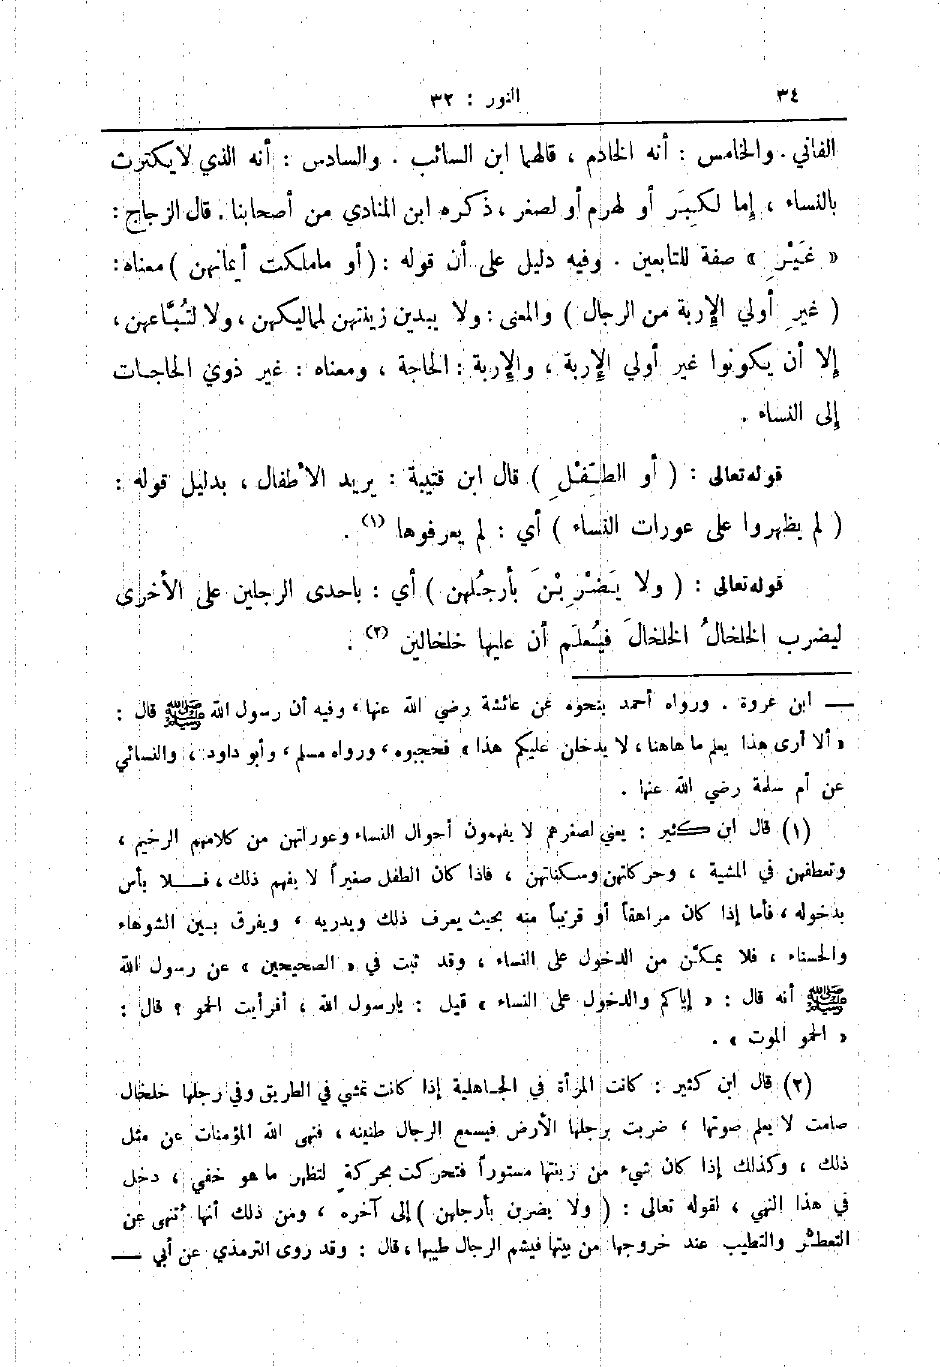 ٣٤ النور : ٣٢
الفاني . والخامس : أنه الخادم ، قالهما ابن السائب . والسادس : أنه الذي لا يكترث
بالنساء ، إما لكِبَر أو لهرم أو لصغر ، ذكره ابن المنادي من أصحابنا . قال الزجاج :
« غَيْرِ » صفة للتابعين . وفيه دليل على أن قوله : ( أو ماملكت أيمانهن ) معناه :
( غيرِ أولي الإربة من الرجال ) والمعنى : ولا يبدين زينتهن لمماليكهن ، ولا لتُبَّاعهن ،
إلا أن يكونوا غير أولي الإربة ، والإربة : الحاجة ، ومعناه : غير ذوي الحاجات
إلى النساء .
قوله تعالى : ( أو الطِّفْلِ ) قال ابن قتيبة : يريد الأطفال ، بدليل قوله :
( لم يظهروا على عورات النساء ) أي : لم يعرفوها (١) .
قوله تعالى : ( ولا يَضْرِبْنَ بأرجُلهن ) أي : باحدى الرجلين على الأخرى
ليضرب الخلخالُ الخلخالَ فيُعلَم أن عليها خلخالين (٢) .
— ابن عروة . ورواه أحمد بنحوه عن عائشة رضي الله عنها ، وفيه أن رسول الله ﷺ قال :
« ألا أرى هذا يعلم ما هاهنا ، لا يدخلن عليكم هذا » فحجبوه ، ورواه مسلم ، وأبو داود ، والنسائي
عن أم سلمة رضي الله عنها .
(١) قال ابن كثير : يعني لصغرهم لا يفهمون أحوال النساء وعوراتهن من كلامهم الرخيم ،
وتعطفهن في المشية ، وحركاتهن وسكناتهن ، فاذا كان الطفل صغيراً لا يفهم ذلك ، فلا بأس
بدخوله ، فأما إذا كان مراهقاً أو قريباً منه بحيث يعرف ذلك ويدريه ، ويفرق بين الشوهاء
والحسناء ، فلا يمكَّن من الدخول على النساء ، وقد ثبت في « الصحيحين » عن رسول الله
ﷺ أنه قال : « إياكم والدخول على النساء » قيل : يارسول الله ، أفرأيت الحمو ؟ قال :
« الحمو الموت » .
(٢) قال ابن كثير : كانت المرأة في الجاهلية إذا كانت تمشي في الطريق وفي رجلها خلخال
صامت لا يعلم صوتها ، ضربت برجلها الأرض فيسمع الرجال طنينه ، فنهى الله المؤمنات عن مثل
ذلك ، وكذلك إذا كان شيء من زينتها مستوراً فتحركت بحركةٍ لتظهر ما هو خفي ، دخل
في هذا النهي ، لقوله تعالى : ( ولا يضربن بأرجلهن ) إلى آخره ، ومن ذلك أنها تُنهى عن
التعطُّر والتطيب عند خروجها من بيتها فيشم الرجال طيبها ، قال : وقد روى الترمذي عن أبي —